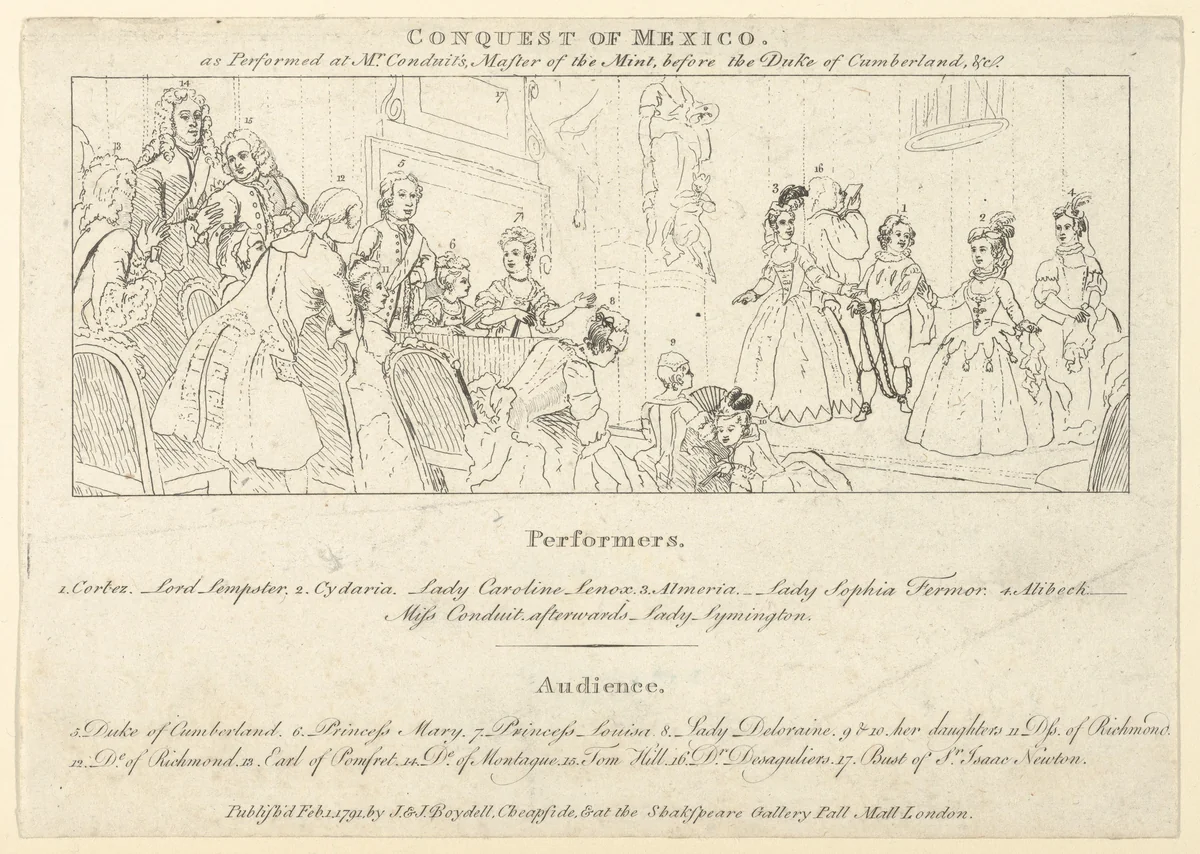 CONQUEST OF MEXICO.
as Performed at Mr. Conduit's, Master of the Mint, before the Duke of Cumberland, &c.
14
17
15
13
12
5
3
16
4
1
2
7
6
11
8
9
10
Performers.
1. Cortez. Lord Lempster. 2. Cydaria. Lady Caroline Lenox. 3. Almeria. Lady Sophia Fermor. 4. Alibech
Miss Conduit. afterwards Lady Lymington.
Audience.
5. Duke of Cumberland. 6. Princess Mary. 7. Princess Louisa. 8. Lady Deloraine. 9 & 10. her daughters 11 Dss. of Richmond.
12. De. of Richmond. 13. Earl of Pomfret. 14. De. of Montague. 15. Tom Hill. 16. Dr. Desaguliers. 17. Bust of Sr. Isaac Newton.
Publish'd Feb. 1. 1791, by J. & J. Boydell, Cheapside, & at the Shakspeare Gallery Pall Mall London.